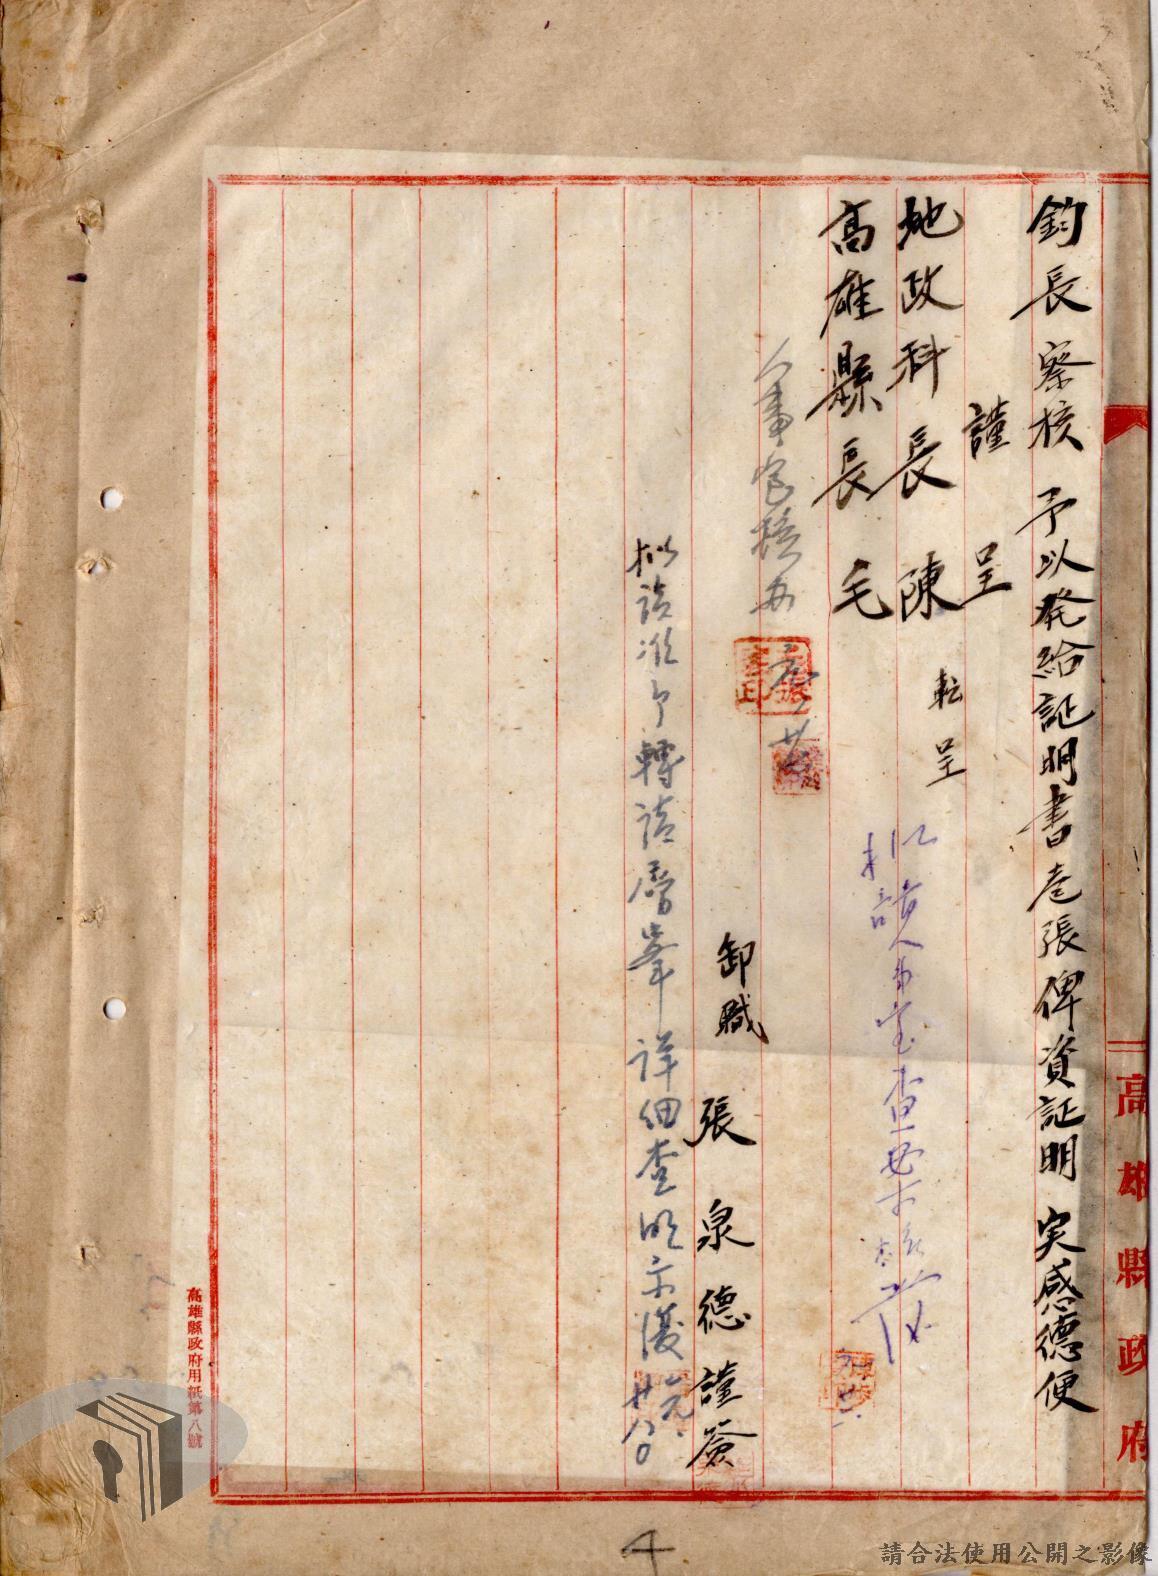 鈞長察核 予以発給証明書壱張俾資証明 実感德便
謹 呈
地政科長陳 転呈
高雄縣長毛
人事室核办
卸職 張泉德謹簽
拟請准予轉請層峯詳細查明示復
高雄縣政府
高雄縣政府用紙第八號
4
請合法使用公開之影像